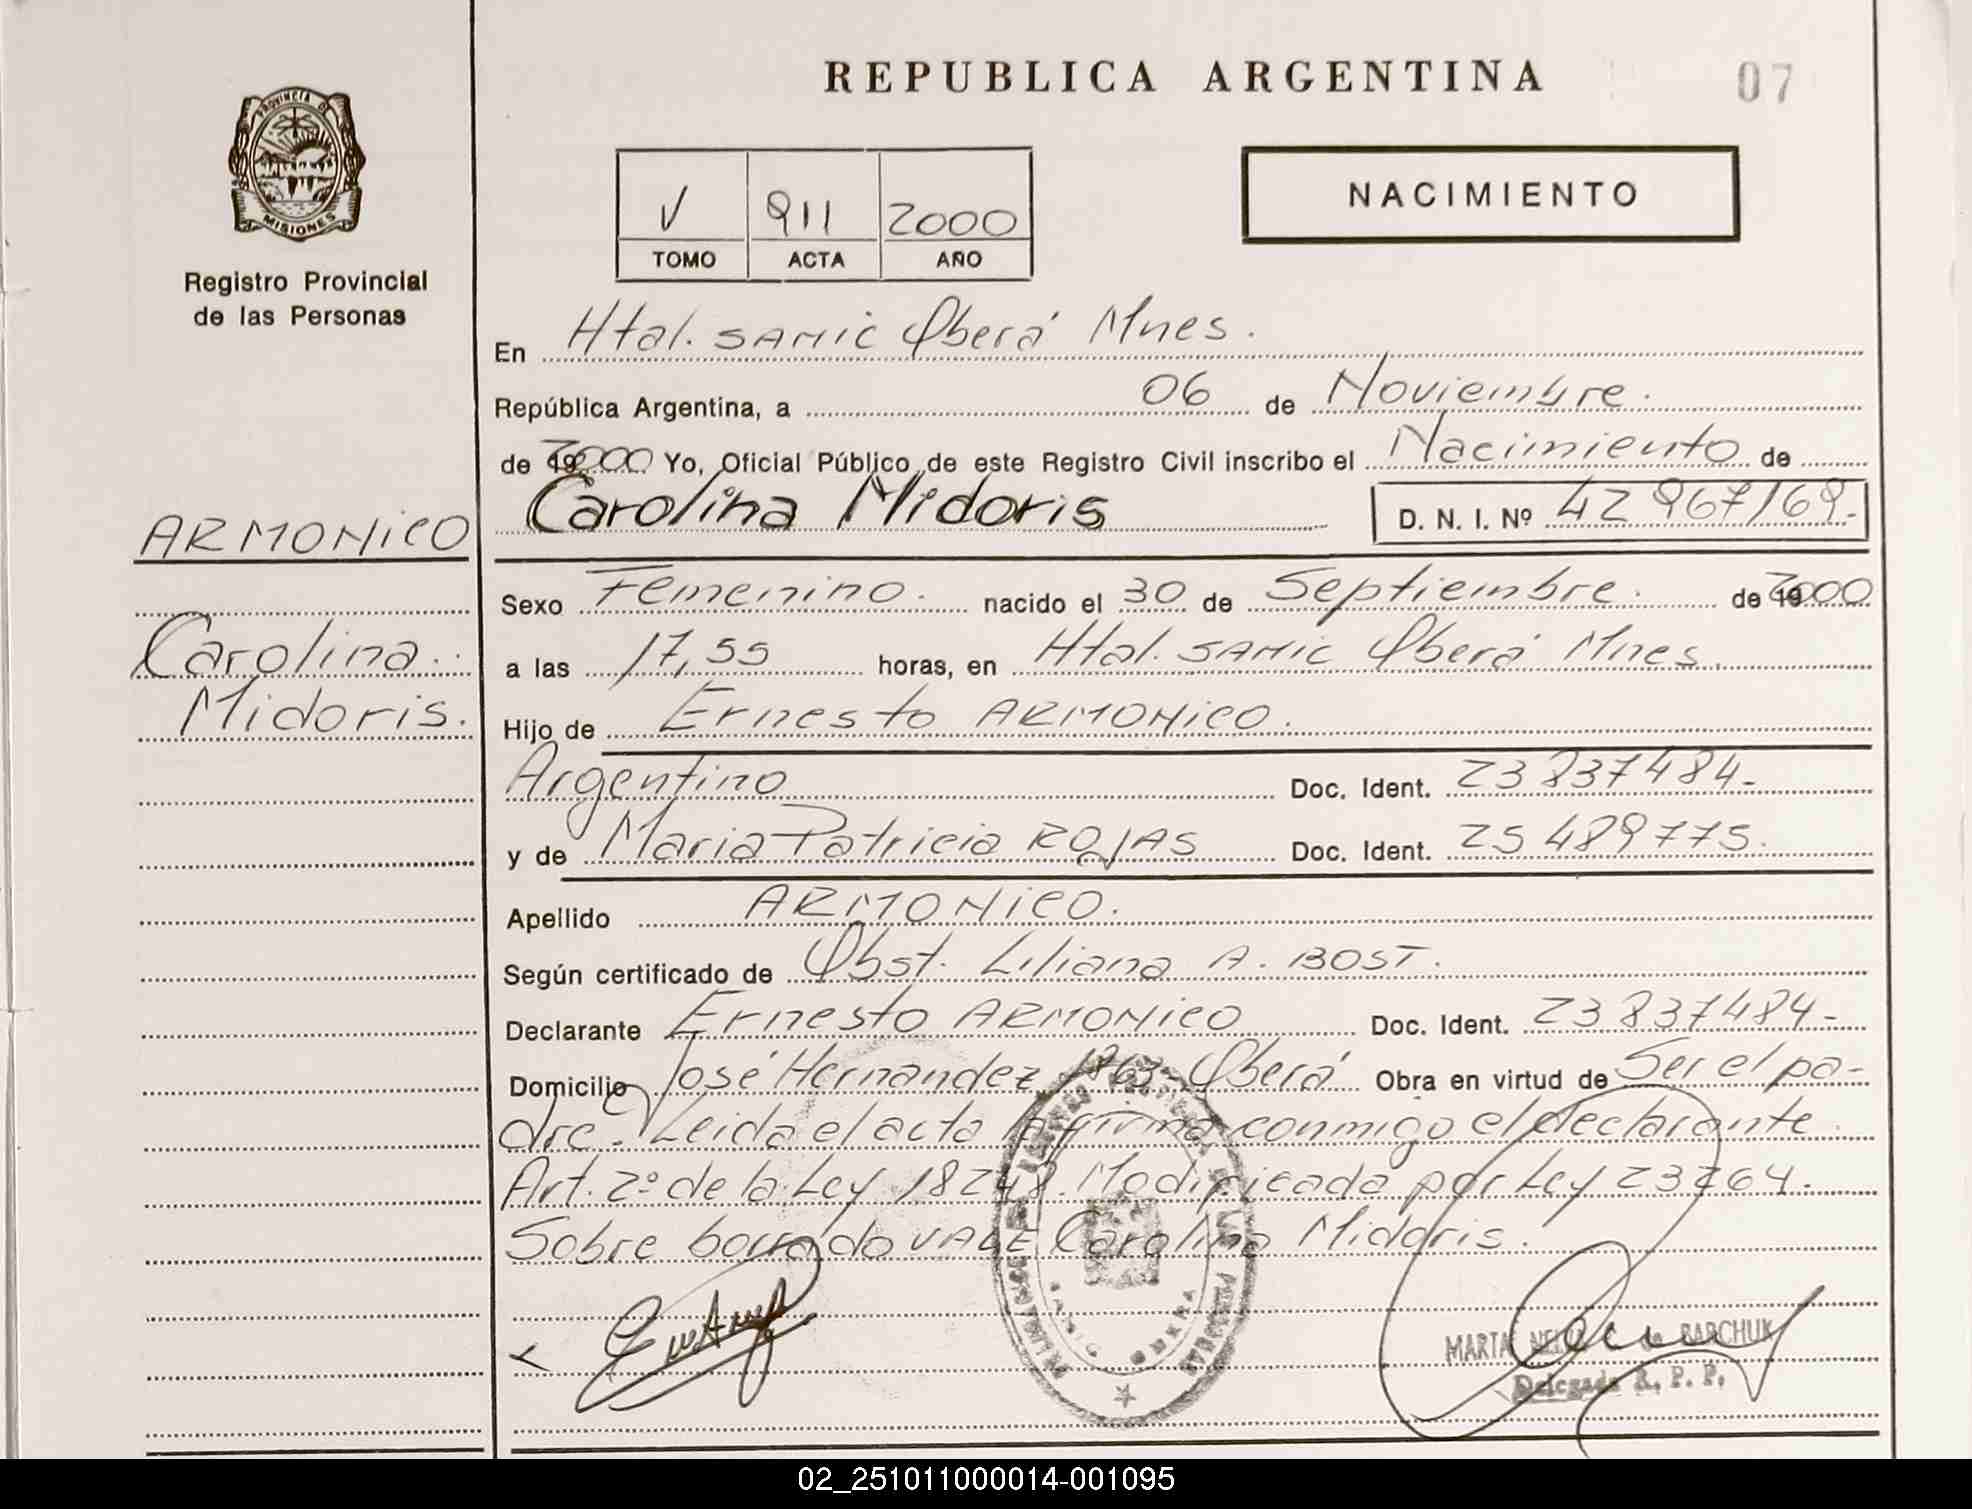 REPUBLICA ARGENTINA
07
PROVINCIA DE
MISIONES
Registro Provincial
de las Personas
V 911 2000
TOMO ACTA AÑO
NACIMIENTO
En Htal. SAMIC Oberá Mnes.
República Argentina, a 06 de Noviembre.
de 2000 Yo, Oficial Público de este Registro Civil inscribo el Nacimiento de
Carolina Midoris D. N. I. Nº 42 967169.-
ARMONICO
Carolina
Midoris.
Sexo Femenino. nacido el 30 de Septiembre. de 2000
a las 17,55 horas, en Htal. SAMIC Oberá Mnes.
Hijo de Ernesto ARMONICO.
Argentino Doc. Ident. 23 837484.-
y de Maria Patricia ROJAS Doc. Ident. 25 489775.
Apellido ARMONICO.
Según certificado de Obst. Liliana A. BOST.
Declarante Ernesto ARMONICO Doc. Ident. 23 837484.-
Domicilio José Hernandez 1863- Oberá Obra en virtud de Ser el pa-
dre. Leida el acta la firma conmigo el declarante.
Art. 2º de la Ley 18248. Modificada por Ley 23264.
Sobre borrado VALE Carolina Midoris.
MARTA BARCHUK
Delegada R. P. P.
02_251011000014-001095